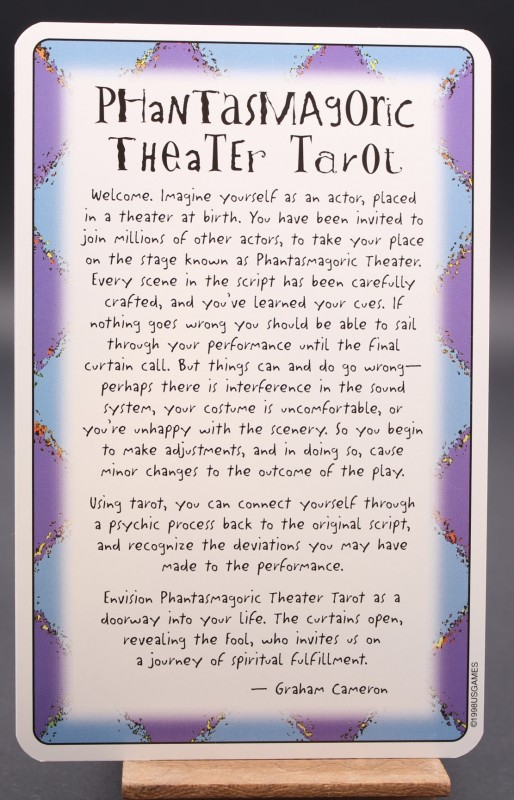 PHanTasMAgoric
THeaTEr Tarot
Welcome. Imagine yourself as an actor, placed
in a theater at birth. You have been invited to
join millions of other actors, to take your place
on the stage known as Phantasmagoric Theater.
Every scene in the script has been carefully
crafted, and you've learned your cues. If
nothing goes wrong you should be able to sail
through your performance until the final
curtain call. But things can and do go wrong—
perhaps there is interference in the sound
system, your costume is uncomfortable, or
you're unhappy with the scenery. So you begin
to make adjustments, and in doing so, cause
minor changes to the outcome of the play.
Using tarot, you can connect yourself through
a psychic process back to the original script,
and recognize the deviations you may have
made to the performance.
Envision Phantasmagoric Theater Tarot as a
doorway into your life. The curtains open,
revealing the Fool, who invites us on
a journey of spiritual fulfillment.
— Graham Cameron
©1998USGAMES